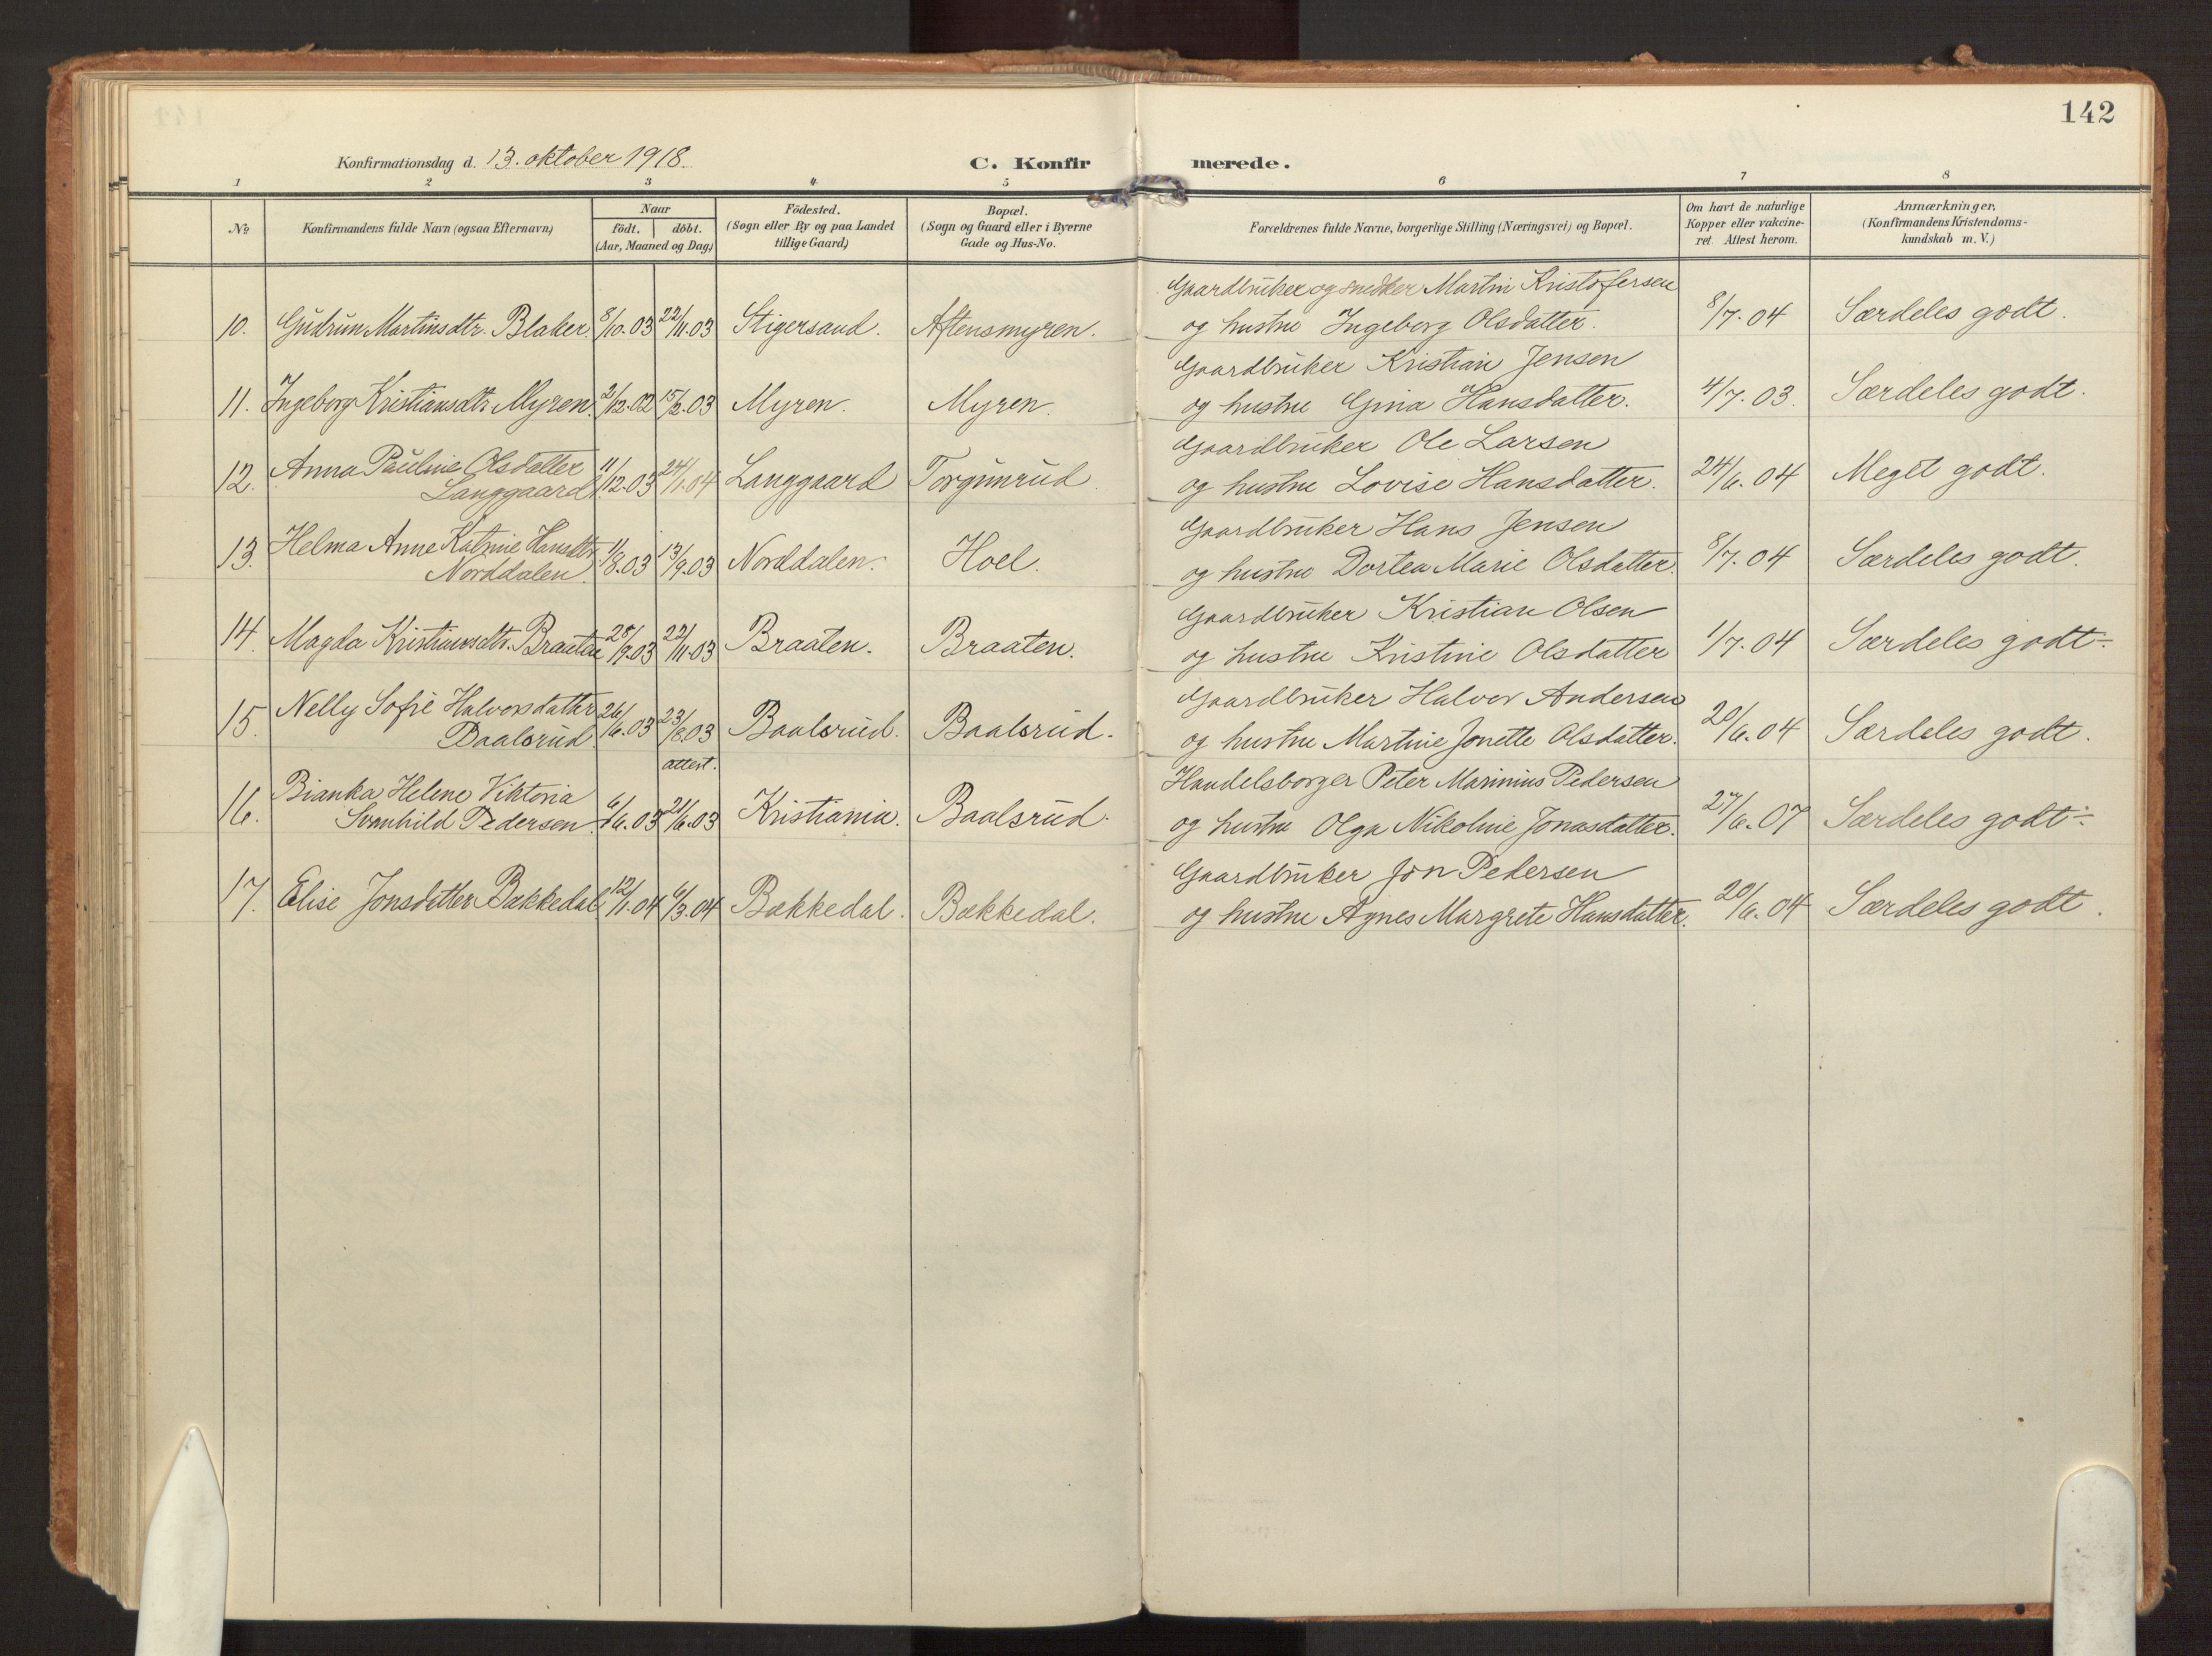 142
Konfirmationsdag d. 13. oktober 1918.
C. Konfirmerede.
1 2 3 4 5 6 7 8
№
Konfirmandens fulde Navn (ogsaa Efternavn)
Naar
födt. döbt.
(Aar, Maaned og Dag)
Födested.
(Sogn eller By og paa Landet
tillige Gaard)
Bopæl.
(Sogn og Gaard eller i Byerne
Gade og Hus-No.
Forældrenes fulde Navne, borgerlige Stilling (Næringsvei) og Bopæl.
Om havt de naturlige
Kopper eller vakcine-
ret Attest herom.
Anmærkninger.
(Konfirmandens Kristendoms-
kundskab m. V.)
Gaardbruker og snedker Martin Kristofersen
10. Gudrun Martinsdtr. Blaker. 8/10.03 22/11.03 Stigersand. Aftensmyren. og hustru Ingeborg Olsdatter. 8/7.04 Særdeles godt.
Gaardbruker Kristian Jensen
11. Ingeborg Kristiansdtr Myren. 2/12.02 15/2.03 Myren. Myren. og hustru Gina Hansdatter. 4/7.03. Særdeles godt.
Anna Pauline Olsdatter Gaardbruker Ole Larsen
12. Langgaard 11/12.03 24/1.04 Langgaard Torgunrud. og hustru Lovise Hansdatter. 24/6.04 Meget godt.
Helma Anne Katrine Hansdtr. Gaardbruker Hans Jensen
13. Norddalen. 11/8.03 13/9.03 Norddalen. Hoel. og hustru Dortea Marie Olsdatter. 8/7.04 Særdeles godt.
Gaardbruker Kristian Olsen
14. Magda Kristiansdtr. Braaten 28/9.03 22/11.03 Braaten. Braaten. og hustru Kristine Olsdatter 1/7.04 Særdeles godt÷
Nelly Sofie Halvorsdatter Gaardbruker Halvor Andersen
15. Baalsrud 26/6.03 23/8.03 Baalsrud. Baalsrud. og hustru Martine Jonette Olsdatter. 20/6.04 Særdeles godt.
attest.
Bianka Helene Viktoria Handelsborger Peter Marinius Pedersen
16. Svanhild Pedersen. 6/6.03 21/6.03 Kristiania. Baalsrud. og hustru Olga Nikoline Jonasdatter. 27/6.07 Særdeles godt÷
Gaardbruker Jon Pedersen
17. Elise Jonsdatter Bækkedal 12/1.04 6/3.04 Bækkedal. Bækkedal. og hustru Agnes Margrete Hansdatter. 20/6.04 Særdeles godt.